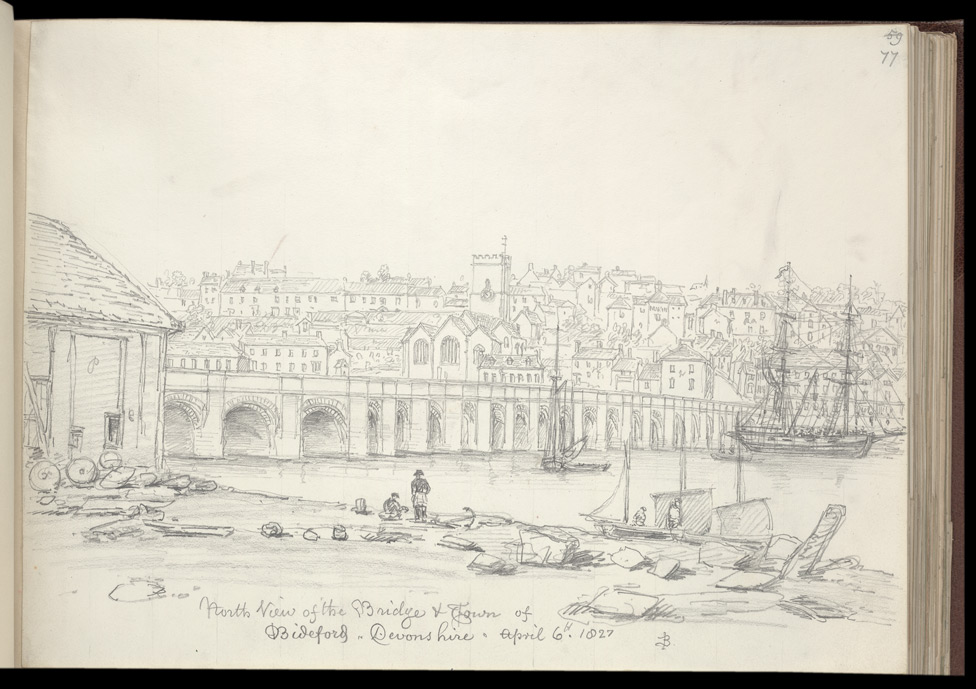 69
77
North View of the Bridge & Town of
Bideford - Devonshire - April 6th. 1827
B